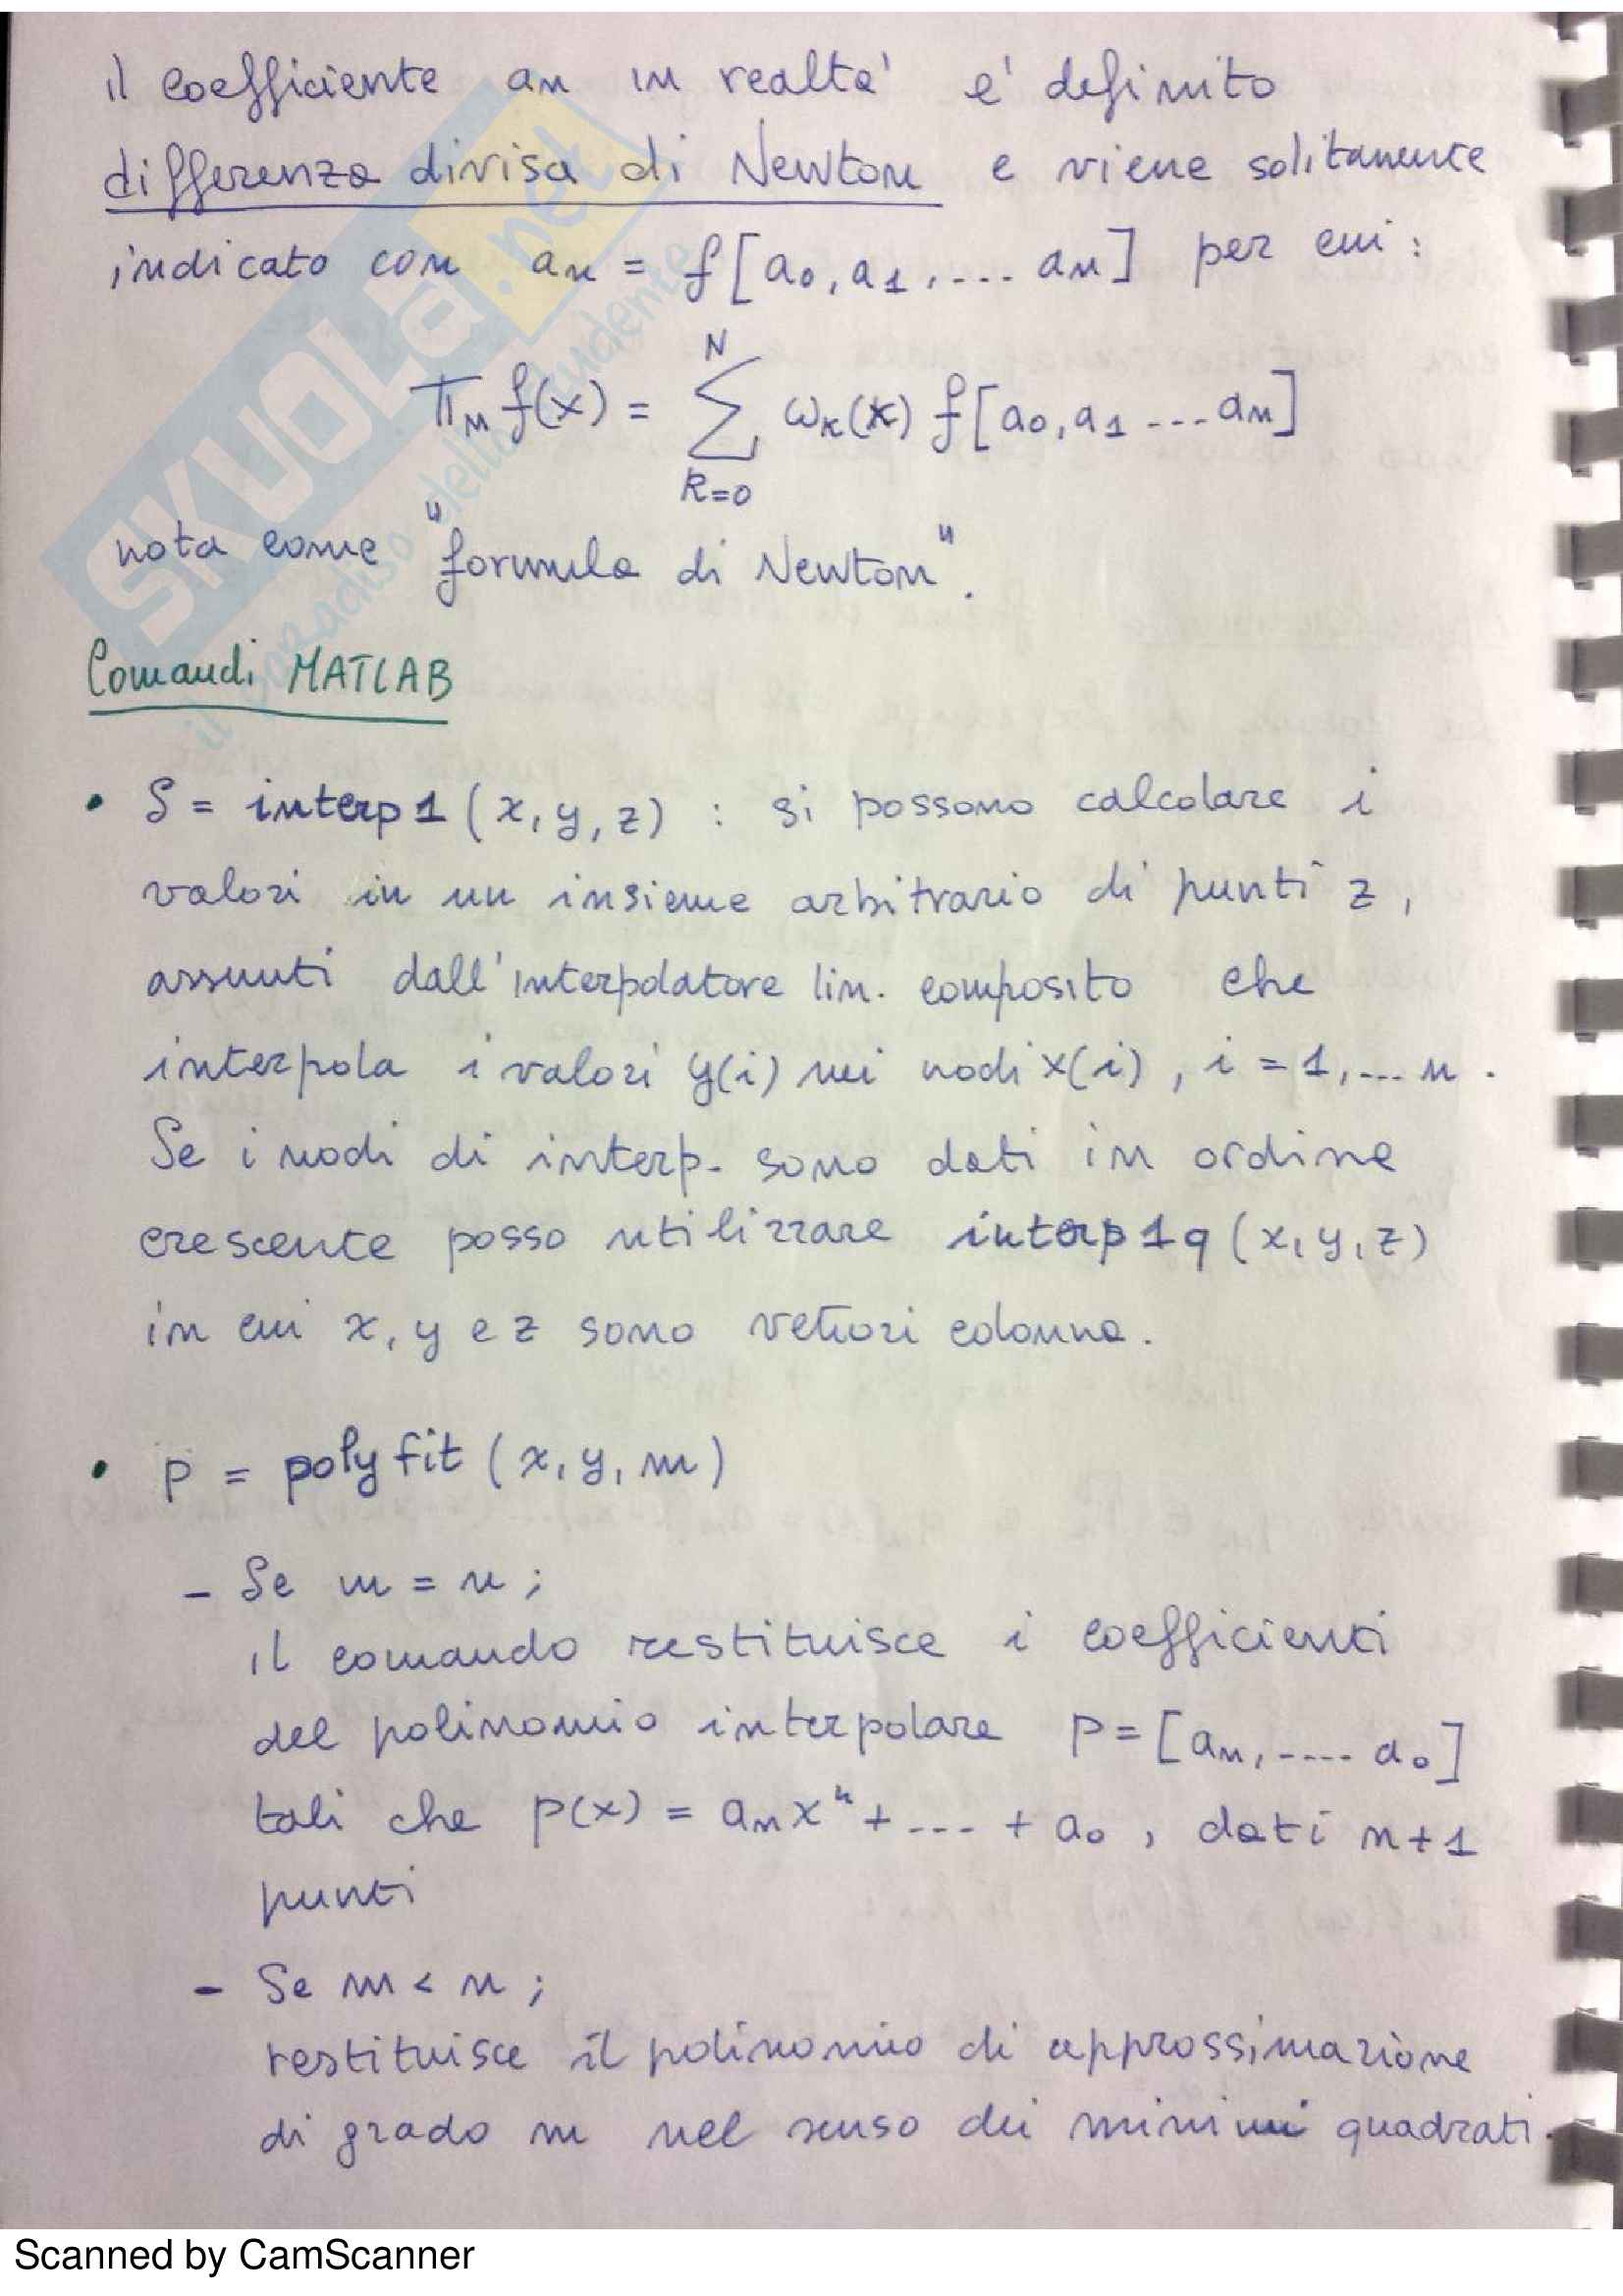 il coefficiente an in realta' e' definito
differenza divisa di Newton e viene solitamente
indicato con an = f[a0, a1, .... an] per cui :
N
πn f(x) = ∑ ωk(x) f[a0, a1 ... an]
k=0
nota come "formula di Newton".
Comandi MATLAB
• S = interp1 (x, y, z) : si possono calcolare i
valori in un insieme arbitrario di punti z,
assunti dall'interpolatore lin. composito che
interpola i valori y(i) nei nodi x(i), i = 1, ... n.
Se i nodi di interp. sono dati in ordine
crescente posso utilizzare interp1q (x, y, z)
in cui x, y e z sono vettori colonna.
• P = polyfit (x, y, m)
- Se m = n ;
il comando restituisce i coefficienti
del polinomio interpolare P = [an, .... a0]
tali che p(x) = an xⁿ + ... + a0 , dati n+1
punti
- Se m < n ;
restituisce il polinomio di approssimazione
di grado m nel senso dei minimi quadrati.
SKUOLA.net
il paradiso dello studente
Scanned by CamScanner